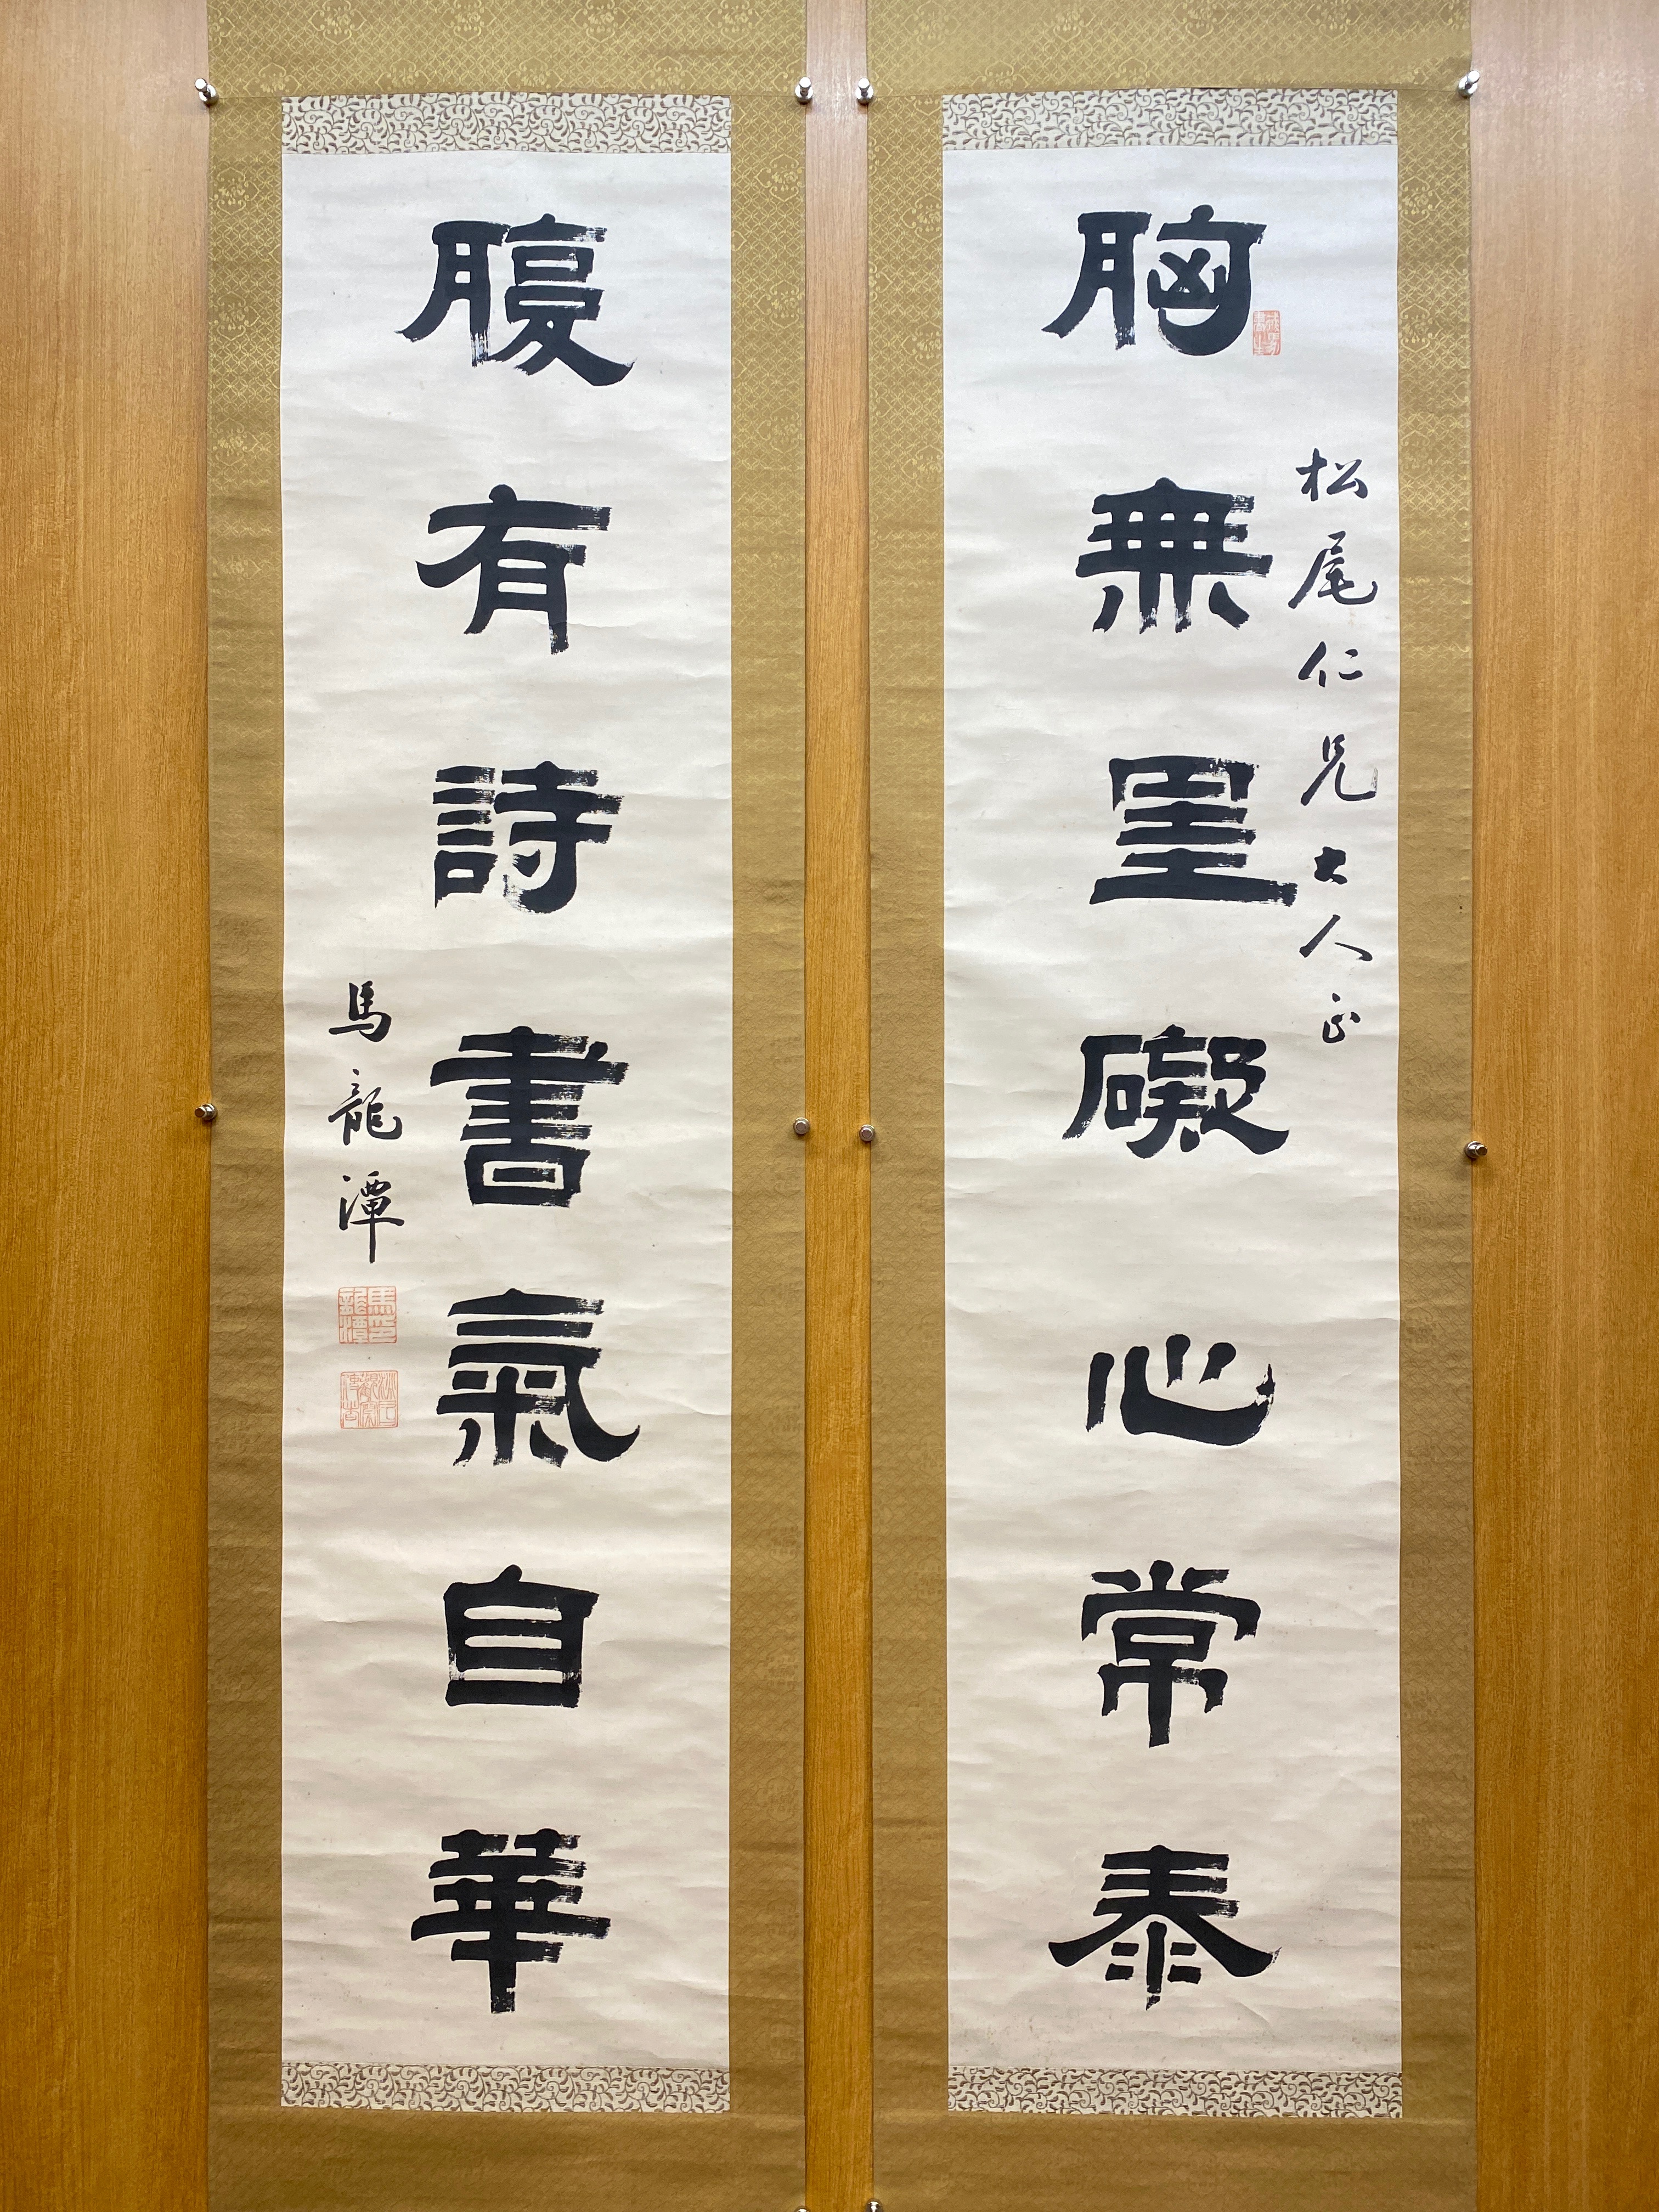 松尾仁兄大人正
胸無罣礙心常泰
腹有詩書氣自華
馬龍潭
馬龍潭印